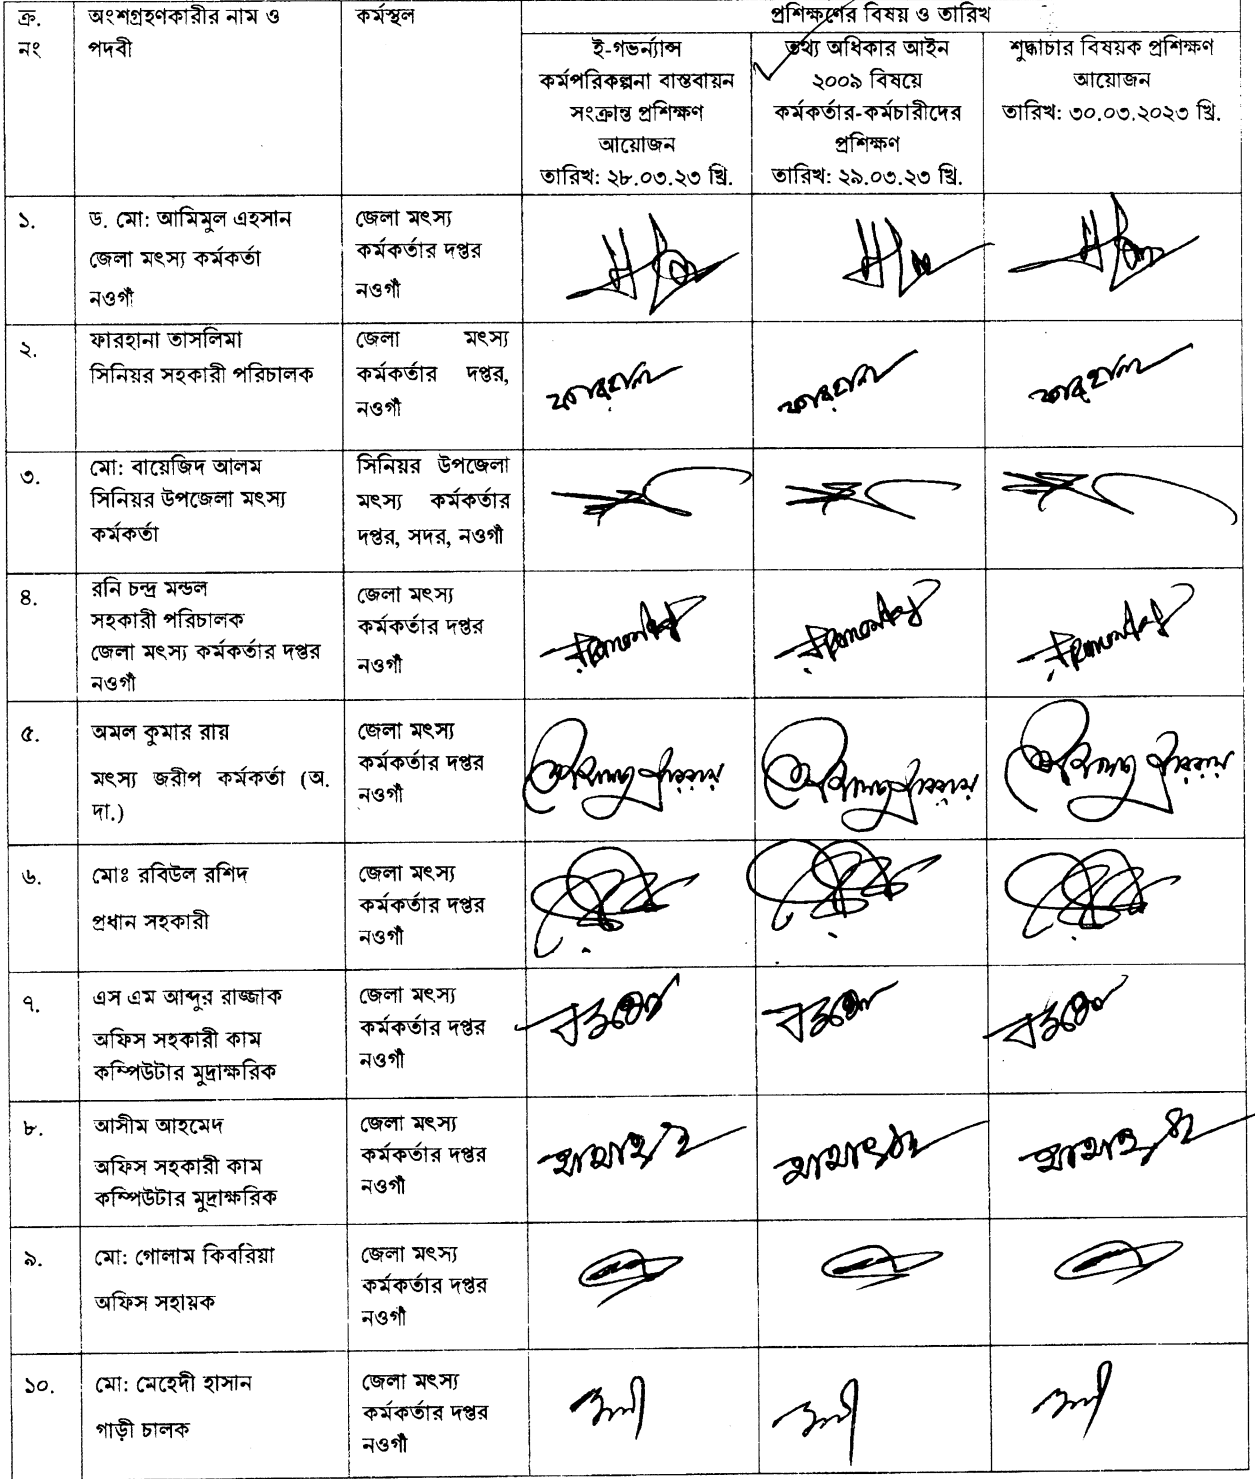 ক্র. নং
অংশগ্রহণকারীর নাম ও পদবী
কর্মস্থল
প্রশিক্ষণের বিষয় ও তারিখ
ই-গভর্ন্যান্স
কর্মপরিকল্পনা বাস্তবায়ন
সংক্রান্ত প্রশিক্ষণ
আয়োজন
তারিখ: ২৮.০৩.২৩ খ্রি.
তথ্য অধিকার আইন
২০০৯ বিষয়ে
কর্মকর্তার-কর্মচারীদের
প্রশিক্ষণ
তারিখ: ২৯.০৩.২৩ খ্রি.
শুদ্ধাচার বিষয়ক প্রশিক্ষণ
আয়োজন
তারিখ: ৩০.০৩.২০২৩ খ্রি.
১.
ড. মো: আমিমুল এহসান
জেলা মৎস্য কর্মকর্তা
নওগাঁ
জেলা মৎস্য
কর্মকর্তার দপ্তর
নওগাঁ
২.
ফারহানা তাসলিমা
সিনিয়র সহকারী পরিচালক
জেলা মৎস্য
কর্মকর্তার দপ্তর,
নওগাঁ
ফারহানা
ফারহানা
ফারহানা
৩.
মো: বায়েজিদ আলম
সিনিয়র উপজেলা মৎস্য
কর্মকর্তা
সিনিয়র উপজেলা
মৎস্য কর্মকর্তার
দপ্তর, সদর, নওগাঁ
৪.
রনি চন্দ্র মন্ডল
সহকারী পরিচালক
জেলা মৎস্য কর্মকর্তার দপ্তর
নওগাঁ
জেলা মৎস্য
কর্মকর্তার দপ্তর
নওগাঁ
৫.
অমল কুমার রায়
মৎস্য জরীপ কর্মকর্তা (অ.
দা.)
জেলা মৎস্য
কর্মকর্তার দপ্তর
নওগাঁ
৬.
মোঃ রবিউল রশিদ
প্রধান সহকারী
জেলা মৎস্য
কর্মকর্তার দপ্তর
নওগাঁ
৭.
এস এম আব্দুর রাজ্জাক
অফিস সহকারী কাম
কম্পিউটার মুদ্রাক্ষরিক
জেলা মৎস্য
কর্মকর্তার দপ্তর
নওগাঁ
৮.
আসীম আহমেদ
অফিস সহকারী কাম
কম্পিউটার মুদ্রাক্ষরিক
জেলা মৎস্য
কর্মকর্তার দপ্তর
নওগাঁ
৯.
মো: গোলাম কিবরিয়া
অফিস সহায়ক
জেলা মৎস্য
কর্মকর্তার দপ্তর
নওগাঁ
১০.
মো: মেহেদী হাসান
গাড়ী চালক
জেলা মৎস্য
কর্মকর্তার দপ্তর
নওগাঁ